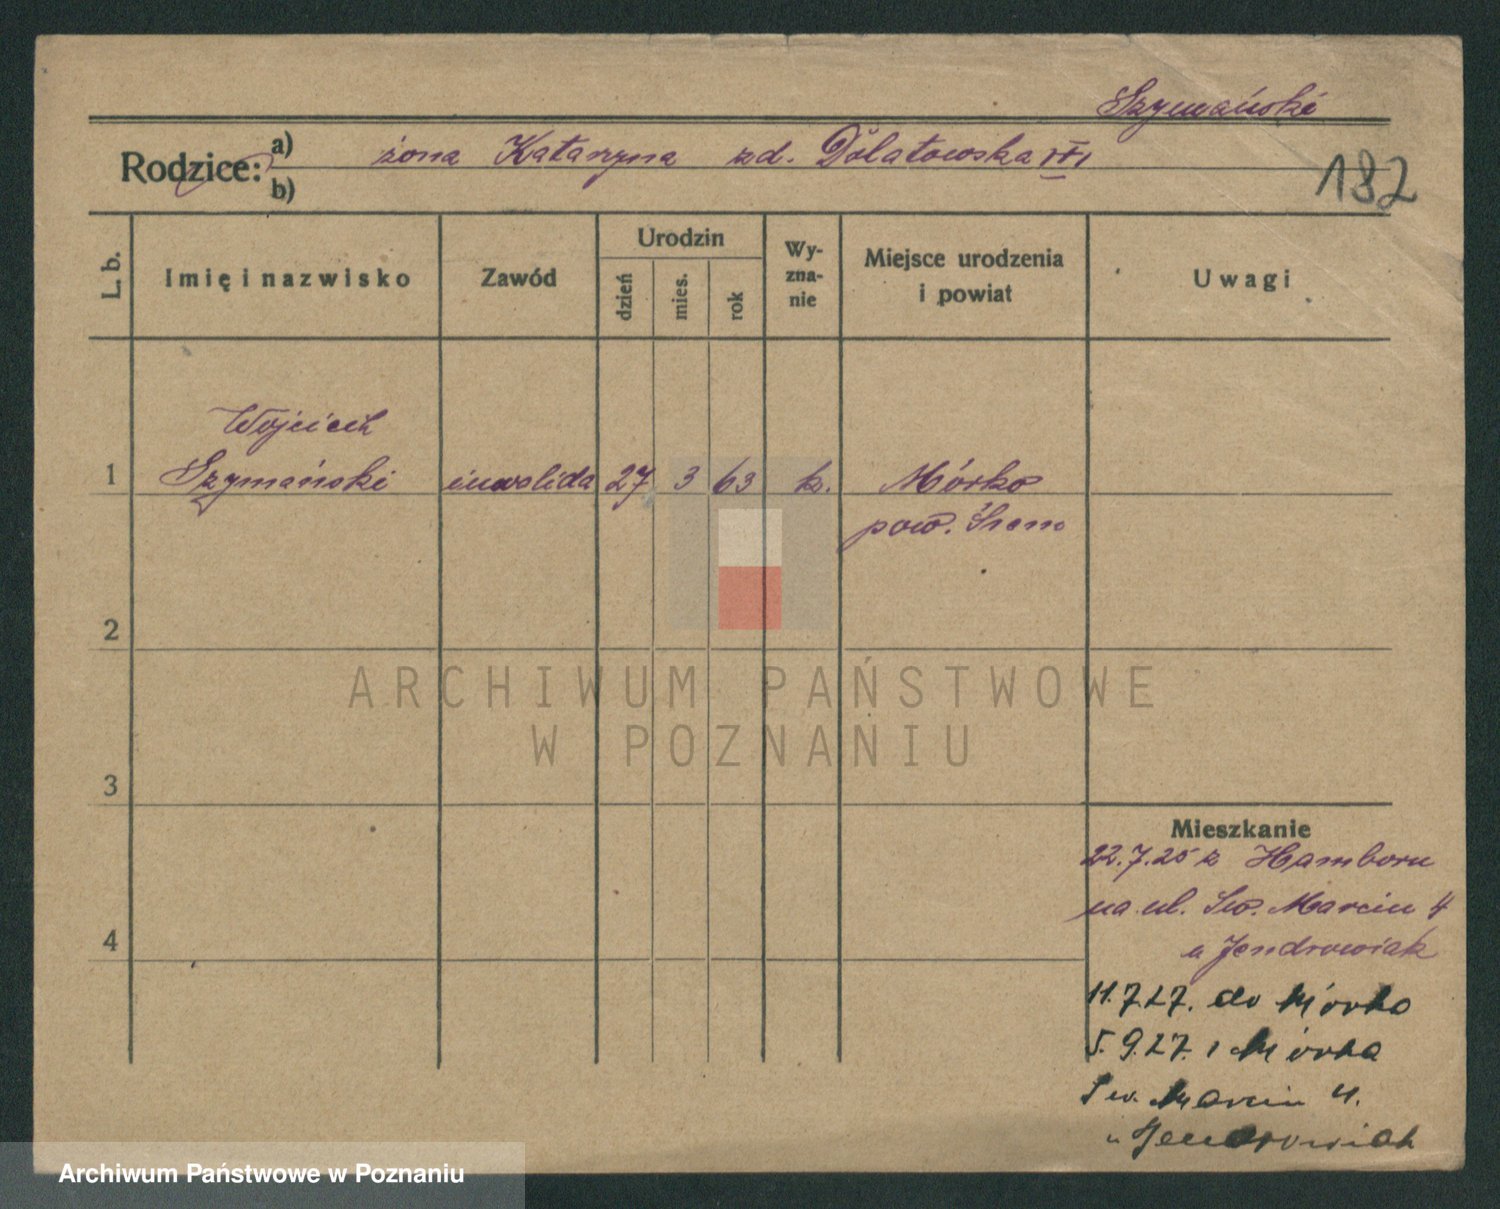 Szymański
Rodzice: a) żona Katarzyna zd. Dolatowska
b)
182
L. b. Imię i nazwisko Zawód Urodzin dzień mies. rok Wy-zna-nie Miejsce urodzenia i powiat Uwagi
Wojciech
1 Szymański inwalida 27 3 63 k. Mórko
pow. Śrem
2
ARCHIWUM PAŃSTWOWE
W POZNANIU
3
Mieszkanie
22.7.25 z Hamborn
na ul. Św. Marcin 4
4
u Jendrowiak
11.7.27. do Mórko
5.9.27. z Mórka
Św. Marcin 4.
u Jendrowiak
Archiwum Państwowe w Poznaniu